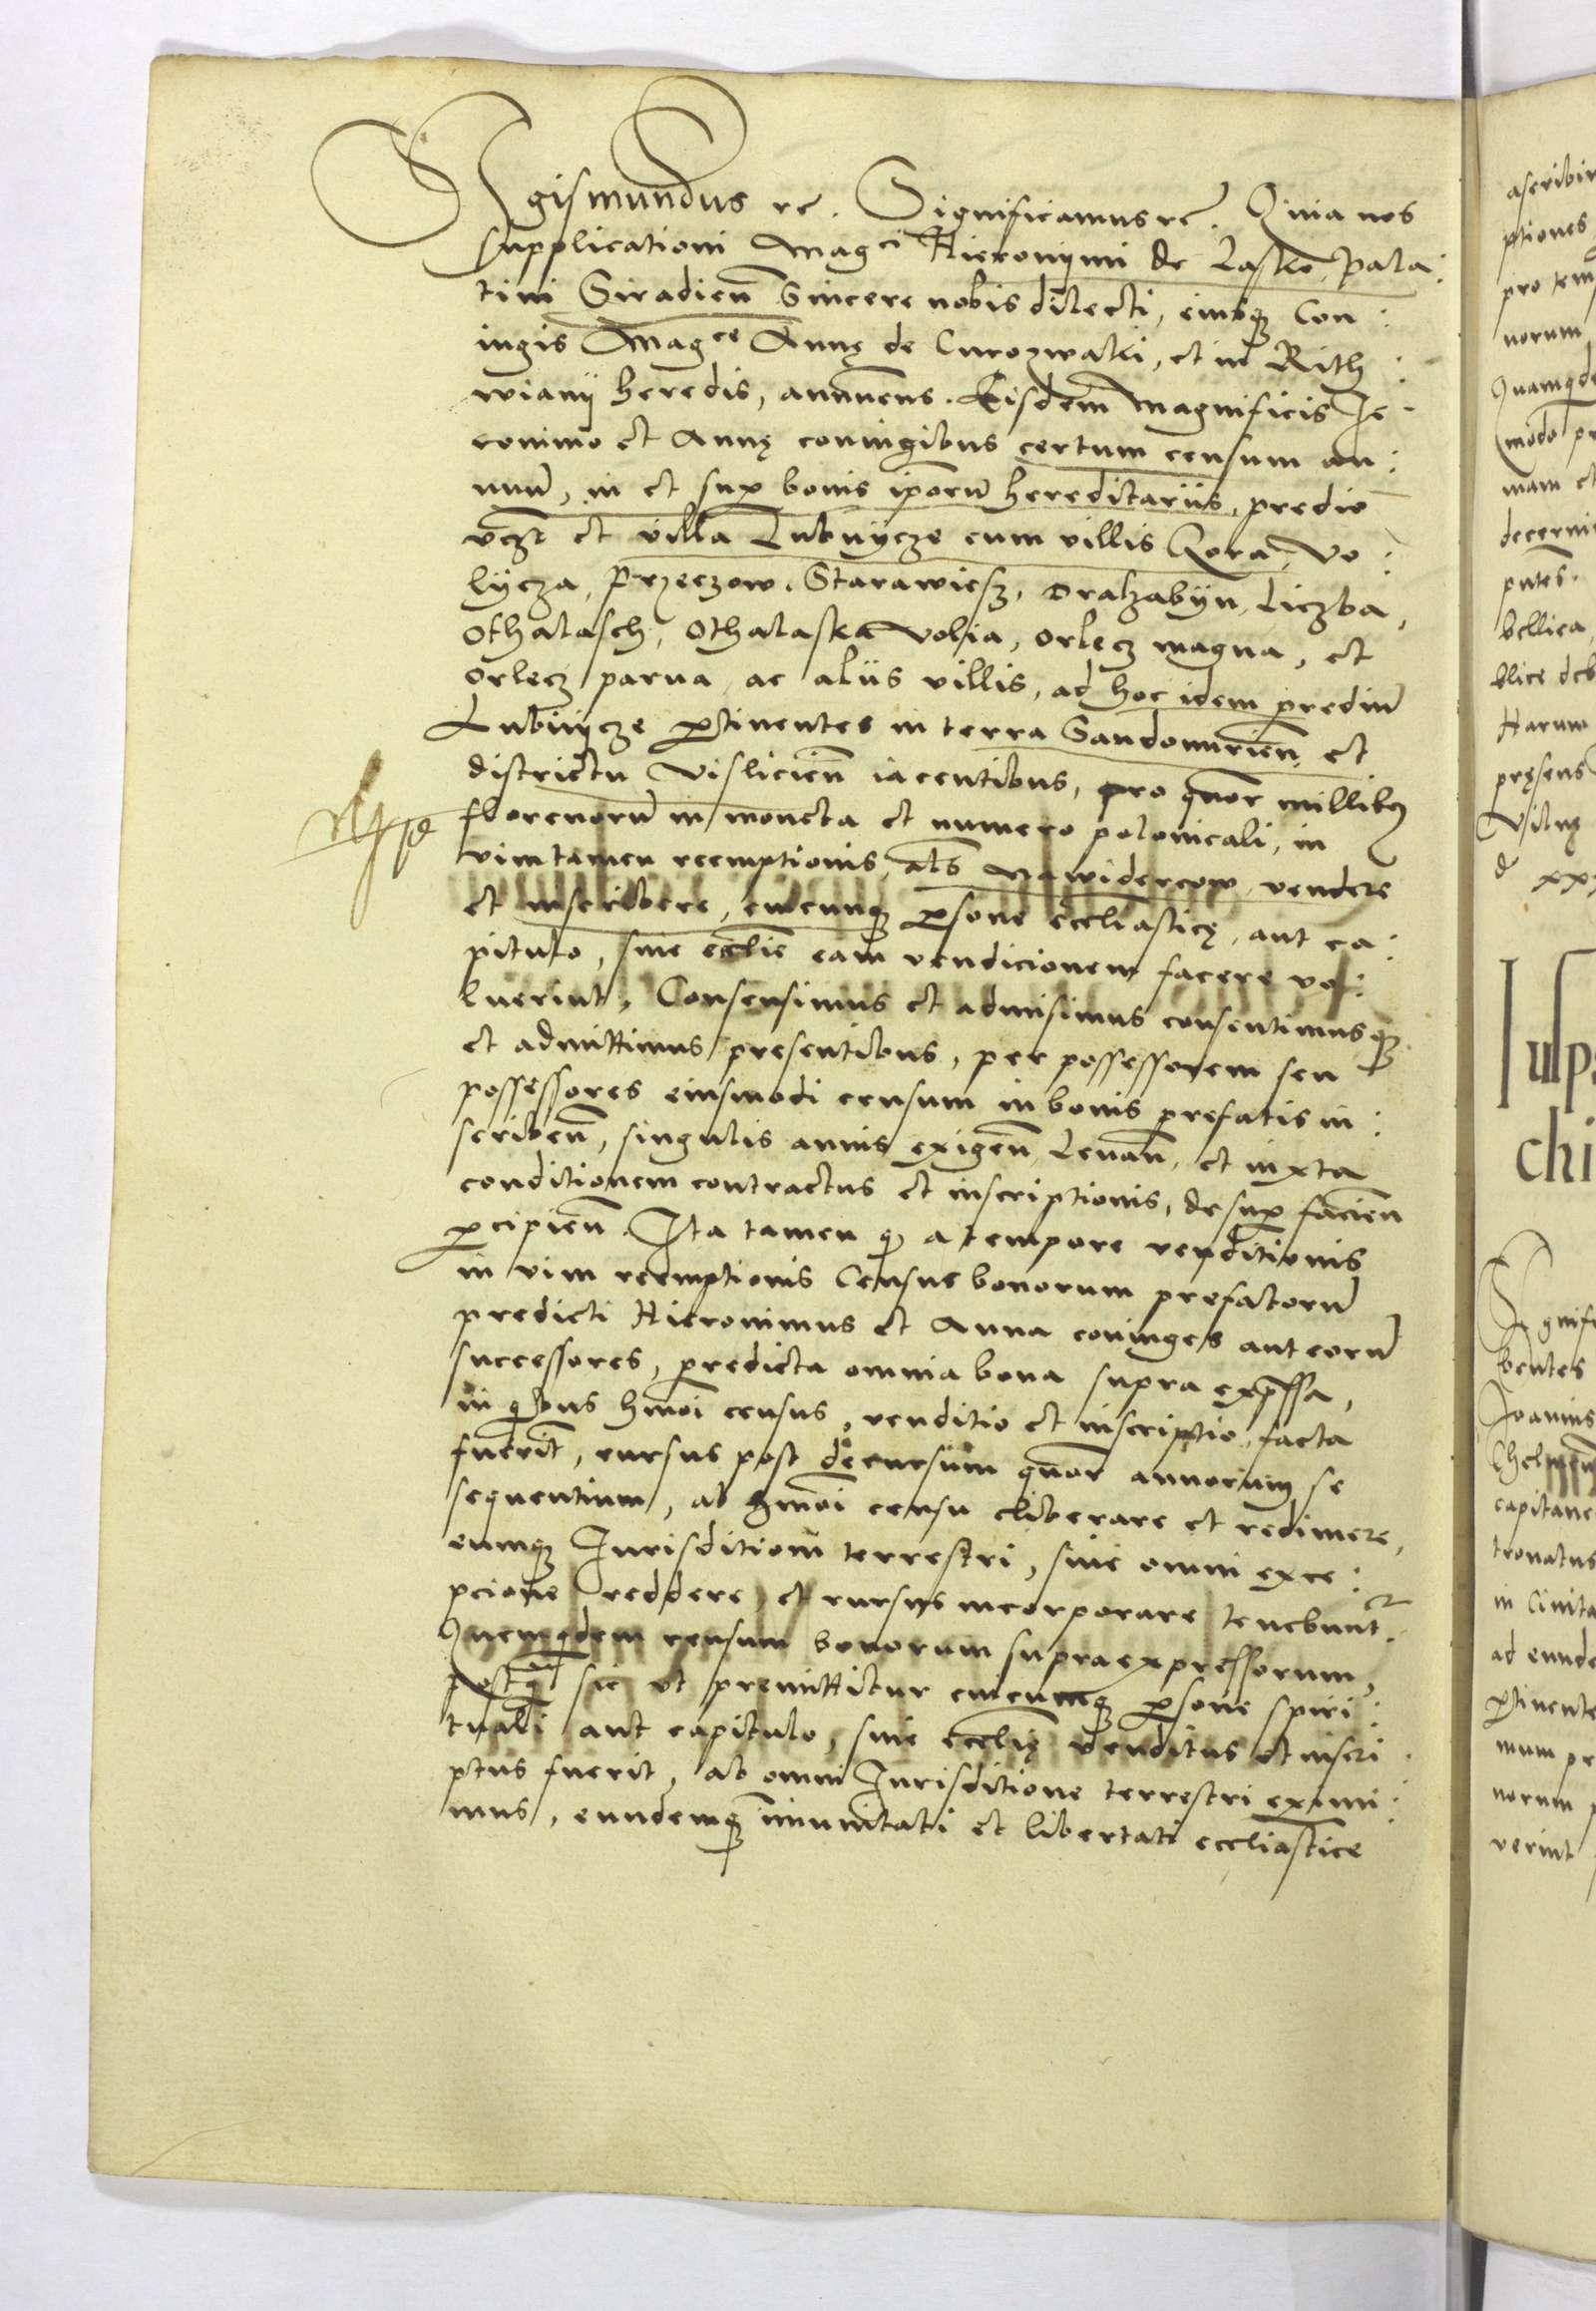 Sigismundus rc. Significamus rc. Quia nos
supplicationi Magci Hieronymi de Lasko, Pala:
tini Siradien̄ Sincere nobis dilecti, eiusq3 Con:
iugis Magce Annę de Curozwaki, et in Rith:
wiany heredis, annuens. Eisdem magnificis Je:
ronimo et Annę coniugibus certum censum an:
nuū, in et sup bonis ipōrū hereditariis, predio
vcz et villa Lubnycze cum villis Gora, Vo:
lycza, Przeczow, Starawiesz, Drahzabyn, Liczba,
Othalasch, Othalaska Volia, Orlecz magna, et
Orlecz parua, ac aliis villis, ad hoc idem prediū
Lubnycze ptinentes in terra Sandomirien̄ et
districtu Vislicien̄ iacentibus, pro quor millib9
florenorū in moneta et numero polonicali, in
vim tamen reemptionis, als na widercow, vendere
et inscribere, cuicunq3 psone eccliasticę, aut ca:
pitulo, siue ecclie eam vendicionem facere vo:
luerint, Consensimus et admisimus consentimusq3
et admittimus presentibus, per possessorem seu
possessores eiusmodi censum in bonis prefatis in:
scriben̄, singulis annis exigen̄, Leuan̄, et iuxta
conditionem contractus et inscriptionis, desup facien̄
pcipien̄. Ita tamen q a tempore venditionis
in vim reemptionis Census bonorum prefatorū
predicti Hieronimus et Anna coniuges aut eorū
successores, predicta omnia bona supra exp̄ssa,
in quibus hmōi census, venditio et inscriptio facta
fuerit, rursus post decursum quor annorum se
sequentium, ab hmōi censu eliberare et redimere,
eumq3 Jurisditioni terrestri, siue omni exce:
pcione reddere, et rursus incorporare tenebuntr.
Quemquidem censum bonorum supraexpressorum,
postq̄ sic ut premittitur cuicumq3 psone spiri:
tuali aut capitulo, siue ecclię venditus et inscri:
ptus fuerit, ab omni Jurisditione terrestri eximi:
mus, eundemq3 imunitati et libertati eccliastice
ascribim
ptiones
pro tem
norum
Quamqde
modo pr
mam et
decerni
pntes.
bellica
Harum
pręsens
Vilnę
d xxx
chi
bentes
Joannis
capitane
tronatus
in Ciuita
ad eunde
ptinente
mum pe
norum
verint